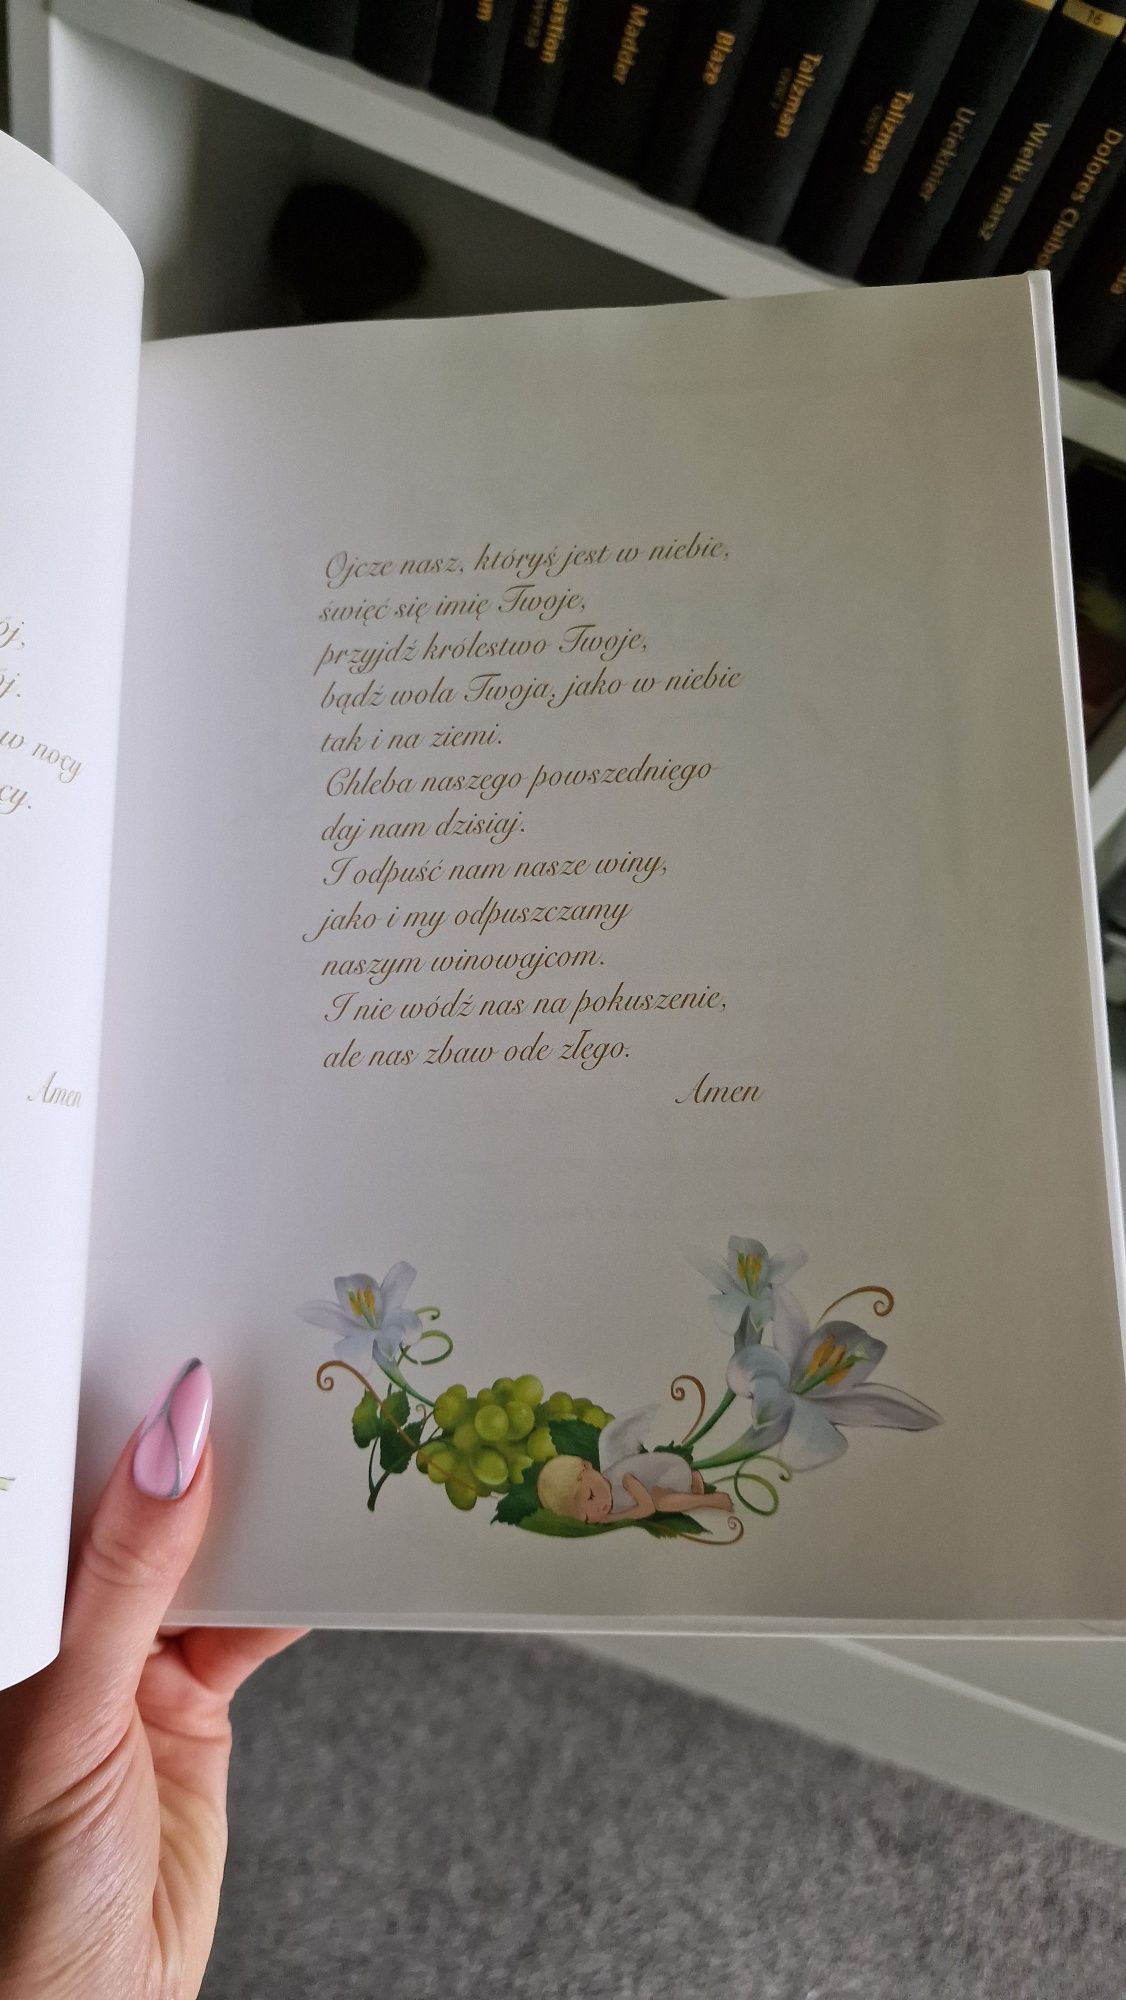 16
Madder
Blaze
Talizman
Talizman
Uciekinier
Wielki marsz
Dolores
w nocy
Amen
Ojcze nasz, któryś jest w niebie,
święć się imię Twoje,
przyjdź królestwo Twoje,
bądź wola Twoja, jako w niebie
tak i na ziemi.
Chleba naszego powszedniego
daj nam dzisiaj.
I odpuść nam nasze winy,
jako i my odpuszczamy
naszym winowajcom.
I nie wódź nas na pokuszenie,
ale nas zbaw ode złego.
Amen